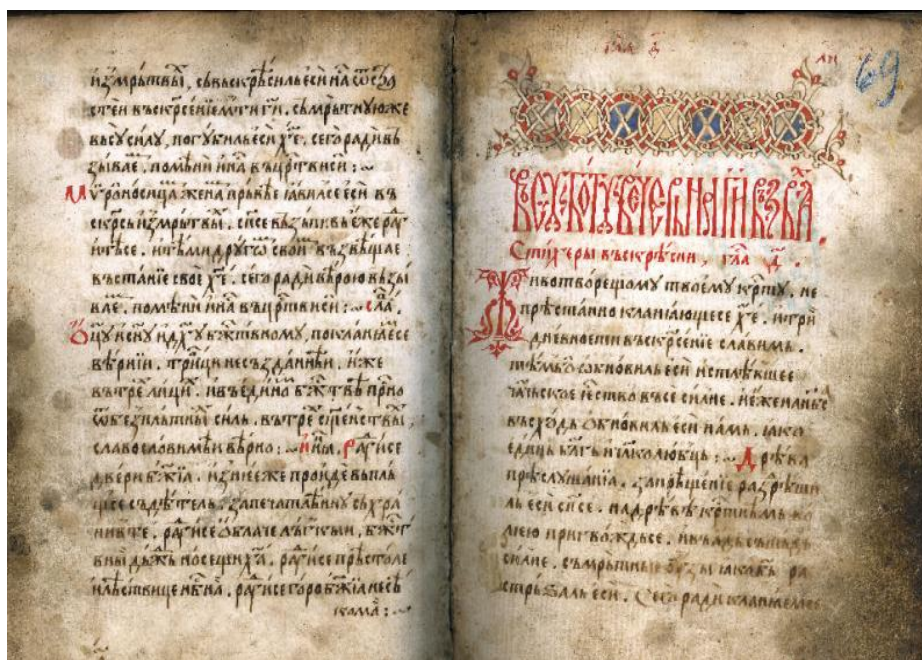 и҆змрьтвы, сьвьскрѣсиль еси
стеи вьскрсенїемь ти ги. сьмрьтную же
вьсу силу, погубиль еси х҃е. сего ради вь
зывае. помени вь цртви си :~
Мѵроносица жена прьвѣе ꙗвил се еси вь
скрсь измрьтвы. спсе вьзьпивь еже рад
ите се. и тѣми другѡ свои вьзвѣщае
вьстанїе свое х҃е. сего ради вѣрою вьзы
вае. помени вь цртви си :~ сла
Оцу и сну и дху бжтвному, поклан се
вѣрнїи. трци несьзданнѣи, иже
вь тре лици. и вь едино бжтвѣ прно
славословим и вѣрно :~ инна. Рад се
двери бжїа. из нее же проиде вьпль
щ се сьдѣтель. запечатлѣнну сьхра
нив те. рад се облаче легкыи, бжт
вны дьжь носещи ха. рад се прѣстоле
и лѣствице нбна. рад се горо бжїа несѣ
кома :~
гла д҃
ли
69
Вь суботу вечерь на ги вьзва
Стихеры вьскрьсни, гла д҃.
Животворещому твоему крту, не
прѣстанно кланꙗюще се х҃е. и три
дневное ти вьскрсенїе славимь.
тѣм бо обновиль еси истлѣвшее
чльское ество вьсесилне. и еже на нбса
вьсходь обновиль еси намь. ꙗко
единь бльгь и чколюбць :~ Дрѣва
прѣслушанїа. запрѣщенїе разрѣши
ль еси спсе. на дрѣвѣ кртнѣмь во
лею пригвождь се. и вь адь сьшьдь
силне. сьмрьтные узы ꙗко бь ра
стрьзаль еси. Сего ради кланꙗем се